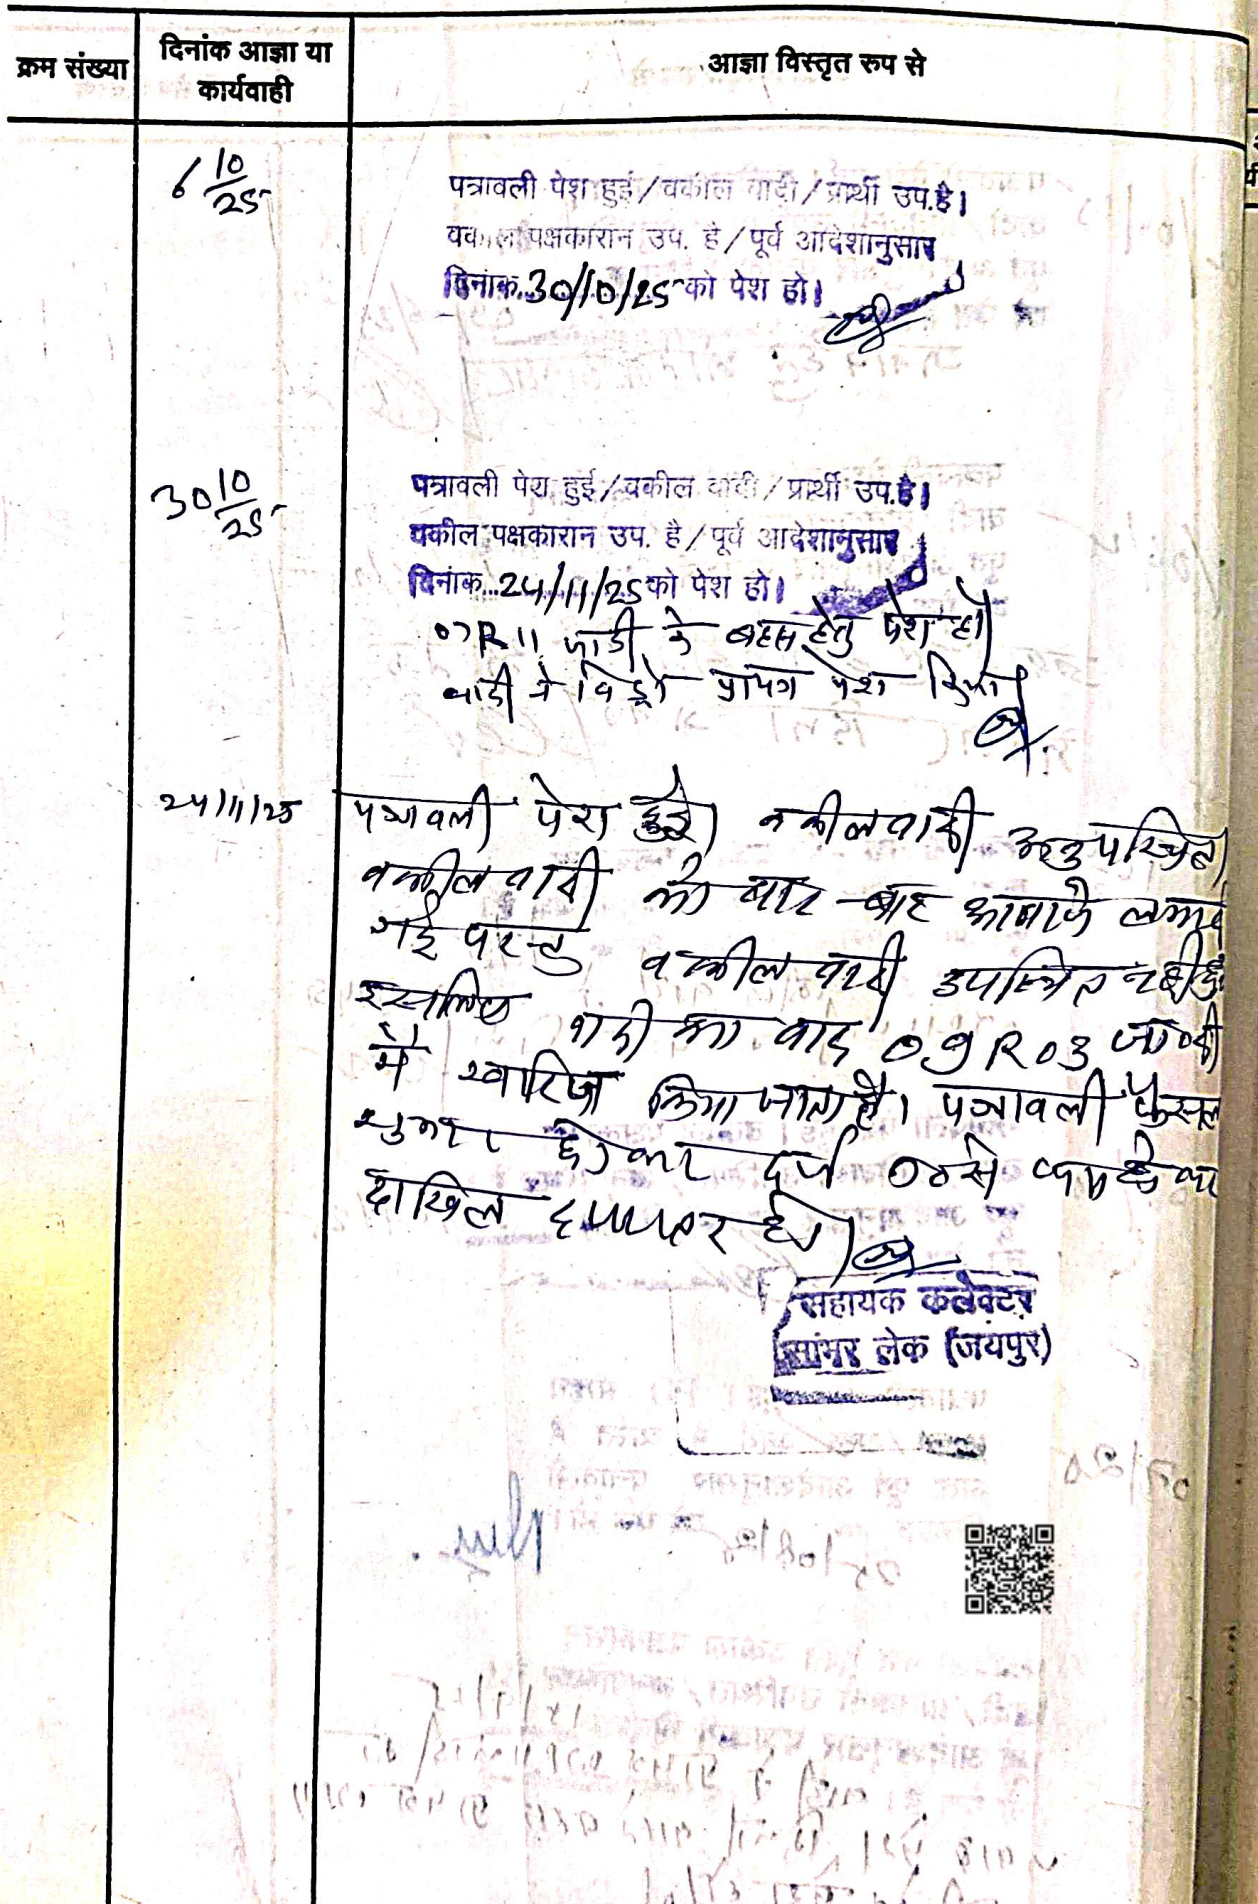 क्रम संख्या
दिनांक आज्ञा या
कार्यवाही
आज्ञा विस्तृत रुप से
6 10/25
पत्रावली पेश हुई/वकील वादी/प्रार्थी उप.है।
वकील पक्षकारान उप. है/पूर्व आदेशानुसार
दिनांक 30/10/25 को पेश हो।
30 10/25
पत्रावली पेश हुई/वकील वादी/प्रार्थी उप.है।
वकील पक्षकारान उप. है/पूर्व आदेशानुसार
दिनांक...24/11/25 को पेश हो।
07R11 बहस हेतु पेश हो
वादी ने पेश किया
24/11/25
पत्रावली पेश हुई। वकील वादी अनुपस्थित।
वकील वादी को बार-बार आवाजे लगाई
गई परन्तु वकील वादी उपस्थित नही हुए
इसलिए वादी का वाद 09R03 जा०दी
मे खारिज किया जाता है। पत्रावली फैसल
शुमार होकर दर्ज न० से कम होकर
दाखिल दफ्तर हो।
सहायक कलेक्टर
सांभर लेक (जयपुर)